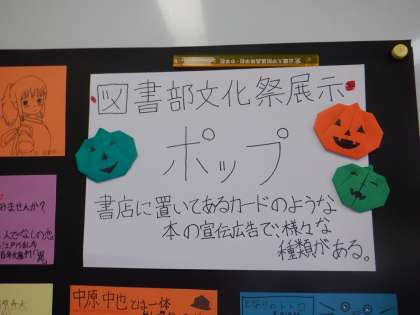 図書部文化祭展示
ポップ
書店に置いてあるカードのような
本の宣伝広告で、様々な
種類がある。
みませんか？
人でなしの恋
江戸川乱歩
中原中也とは一体